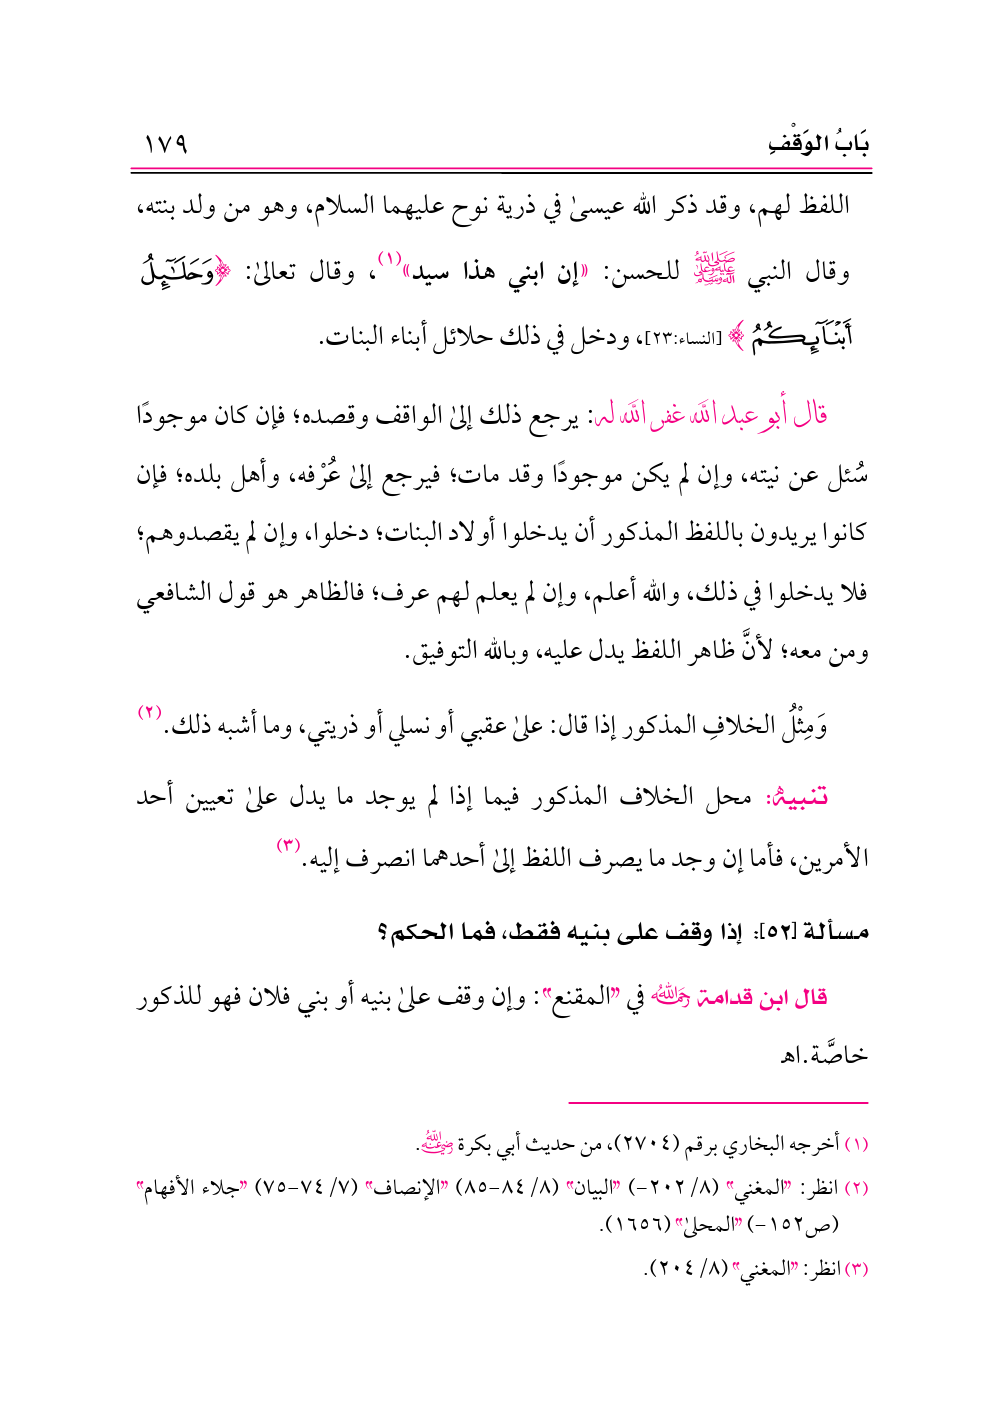 بَابُ الوَقْفِ ١٧٩
اللفظ لهم، وقد ذكر الله عيسىٰ في ذرية نوح عليهما السلام، وهو من ولد بنته،
وقال النبي ﷺ للحسن: «إن ابني هذا سيد»(١)، وقال تعالىٰ: ﴿وَحَلَٰٓئِلُ
أَبْنَآئِكُمُ﴾ [النساء:٢٣]، ودخل في ذلك حلائل أبناء البنات.
قال أبو عبد الله غفر الله له: يرجع ذلك إلىٰ الواقف وقصده؛ فإن كان موجودًا
سُئل عن نيته، وإن لم يكن موجودًا وقد مات؛ فيرجع إلىٰ عُرْفه، وأهل بلده؛ فإن
كانوا يريدون باللفظ المذكور أن يدخلوا أولاد البنات؛ دخلوا، وإن لم يقصدوهم؛
فلا يدخلوا في ذلك، والله أعلم، وإن لم يعلم لهم عرف؛ فالظاهر هو قول الشافعي
ومن معه؛ لأنَّ ظاهر اللفظ يدل عليه، وبالله التوفيق.
وَمِثْلُ الخلافِ المذكور إذا قال: علىٰ عقبي أو نسلي أو ذريتي، وما أشبه ذلك.(٢)
تنبيهٌ: محل الخلاف المذكور فيما إذا لم يوجد ما يدل علىٰ تعيين أحد
الأمرين، فأما إن وجد ما يصرف اللفظ إلىٰ أحدهما انصرف إليه.(٣)
مسألة [٥٢]: إذا وقف على بنيه فقط، فما الحكم؟
قال ابن قدامة رحمه الله في "المقنع": وإن وقف علىٰ بنيه أو بني فلان فهو للذكور
خاصَّة.اهـ
(١) أخرجه البخاري برقم (٢٧٠٤)، من حديث أبي بكرة رضي الله عنه.
(٢) انظر: "المغني" (٨/ ٢٠٢-) "البيان" (٨/ ٨٤-٨٥) "الإنصاف" (٧/ ٧٤-٧٥) "جلاء الأفهام"
(ص١٥٢-) "المحلىٰ" (١٦٥٦).
(٣) انظر: "المغني" (٨/ ٢٠٤).